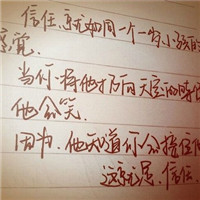 信任,就如同一个一岁小孩的
感觉.
当你将他抛向天空的时候
他会笑.
因为.他知道你会接住他
这就是.信任